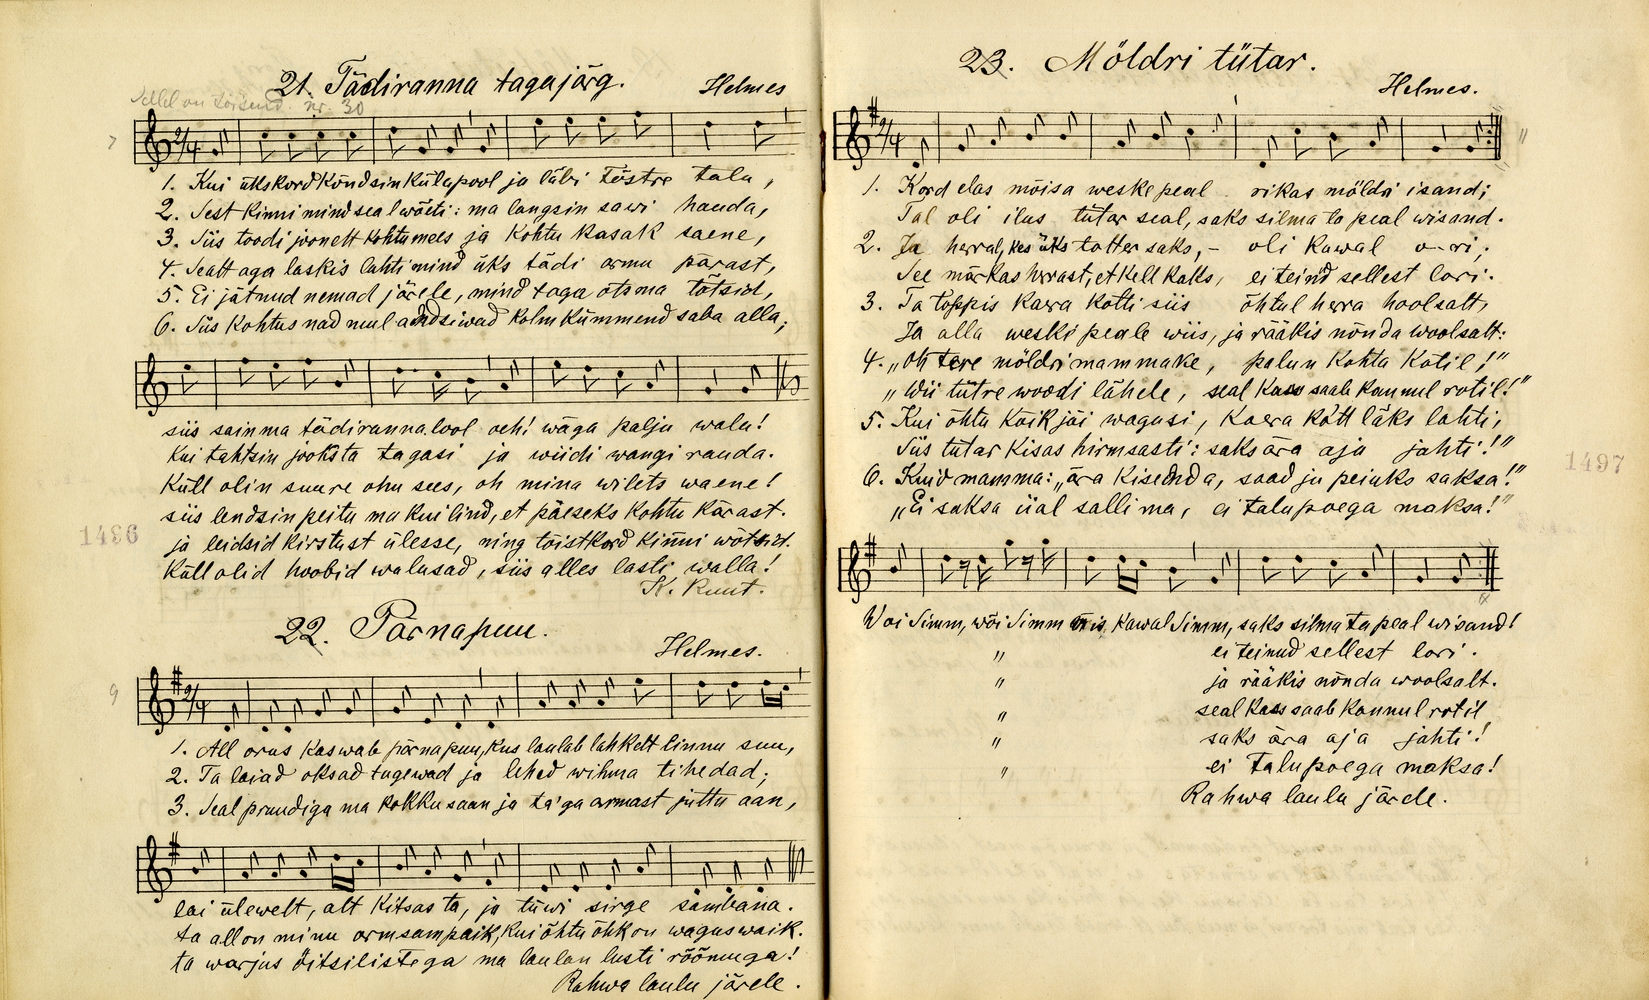 21. Tädiranna tagajärg.
Helmes
Sellel on nr. 30
7
2/4
1. Kui ükskord kõndsin külapool ja läbi Tõstre talu,
2. Sest kinni mind seal wõeti: ma langsin sawi hauda,
3. Siis toodi joonelt kohtumees ja kohtu kasak saene,
4. Sealt aga laskis lahti mind üks tädi armu pärast,
5. Ei jätnud nemad järele, mind taga otsma tõtsid,
6. Siis kohtus nad mul andsiwad kolmkümmend saba alla,
siis sain ma tädiranna lool och! wäga palju walu!
kui tahtsin joosta tagasi ja wiidi wangi randa.
küll olin suure ohu sees, oh mina wilets waene!
siis lendsin peitu ma kui lind, et pääseks kohtu kärast.
ja leidsid kirstust ülesse, ning tõistkord kinni wõtsid.
küll olid hoobid walusad, siis alles lasti walla!
K. Ruut.
1496
22. Pärnapuu.
Helmes.
9
2/4
1. All orus kaswab pärnapuu, kus laulab lahkelt linnu suu,
2. Ta laiad oksad tugewad ja lehed wihma tihedad;
3. Seal pruudiga ma kokku saan ja ta'ga armast juttu aan,
lai ülewelt, alt kitsas ta, ja tüwi sirge sambana.
ta all on minu armsam paik, kui õhtu õhk on wagus waik.
ta warjus õitsilistega ma laulan lusti rõõmuga!
Rahwa laulu järele.
23. Möldri tütar.
Helmes.
2/4
11
1. Kord elas mõisa weske peal rikas möldri isand;
Tal oli ilus tütar seal, saks silma ta peal wisand.
2. Ja herral, kes üks tatter saks, – oli kawal
See märkas herrast, et kell kaks, ei teind sellest lori.
3. Ta toppis kaera kotti siis õhtul herra hoolsalt,
Ja alla weski peale wiis, ja rääkis nõnda woolsalt:
4. „Oh tere möldri mammake, palun kohta kotil!"
„Wii tütre woodi lähele, seal kass saab kannul rotil!"
5. Kui õhtu kõik jäi wagusi, kaera kott läks lahti,
Siis tütar kisas hirmsasti: saks ära aja jahti!"
6. Kuid mamma: „ära kisenda, saad ju peiuks saksa!"
„Ei saksa iial salli ma, ei talupoega maksa!"
1497
Wõi Simm, wõi Simm mis kawal Simm, saks silma ta peal wisand!
" ei teinud sellest lori.
" ja rääkis nõnda woolsalt.
" seal kass saab kannul rotil
" saks ära aja jahti!
" ei talupoega maksa!
Rahwa laulu järele.